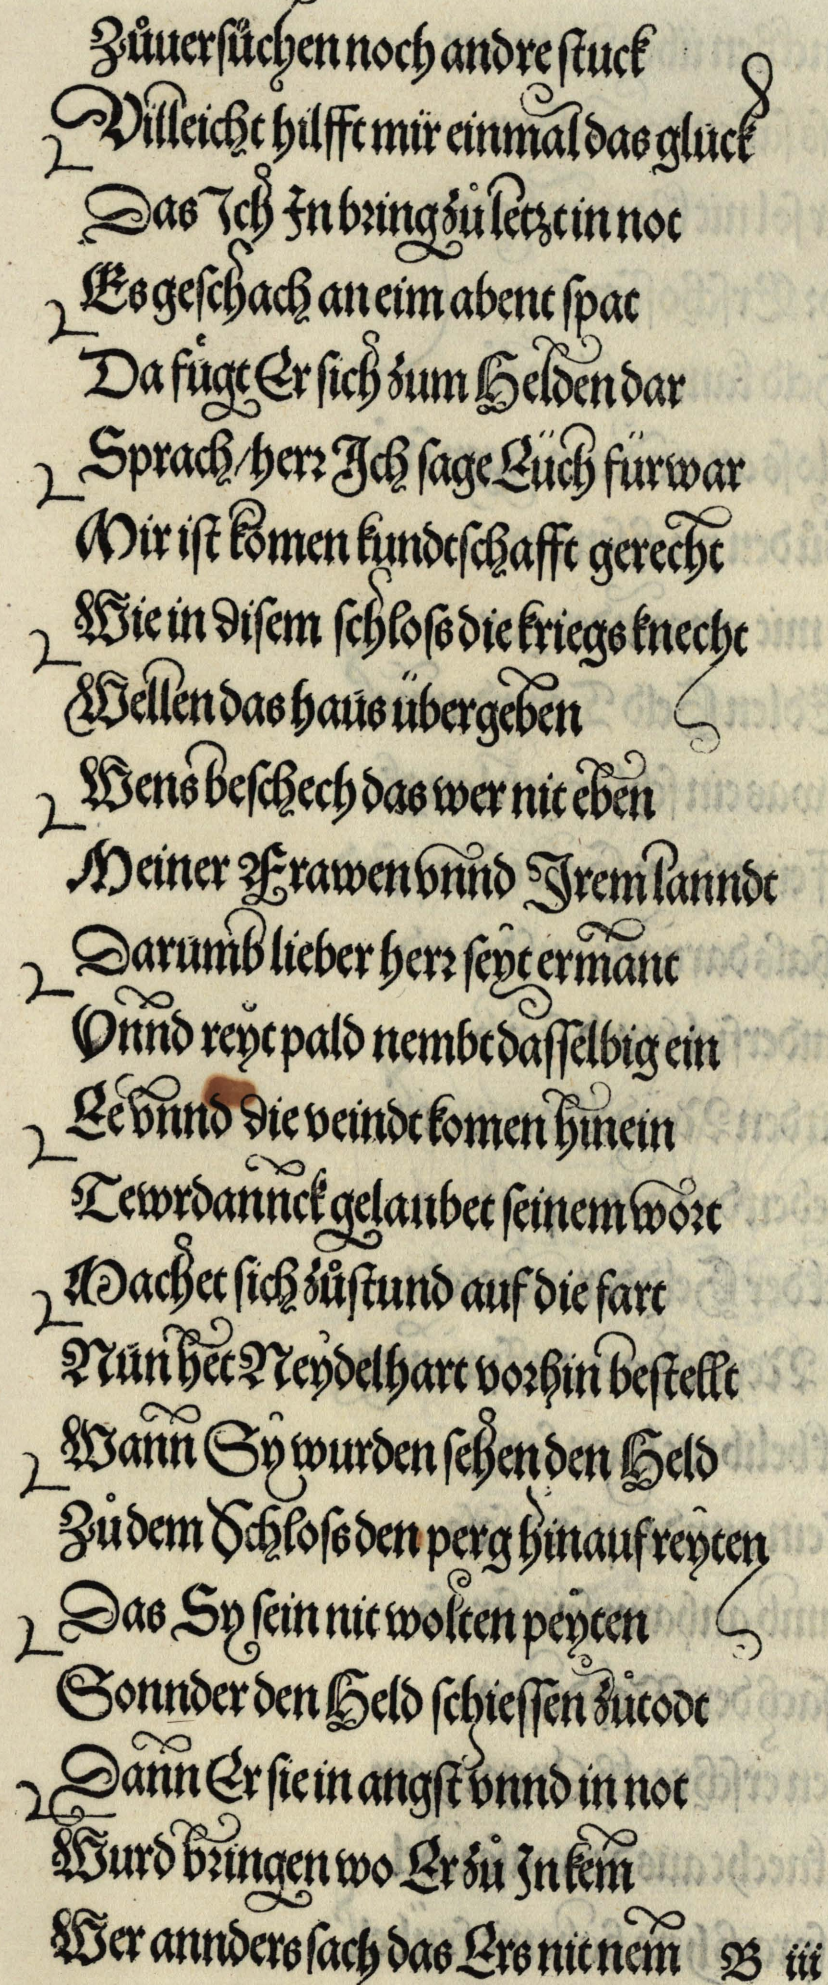 Zůuersůchen noch andre stuck
Villeicht hilfft mir einmal das glück
Das Ich In bring zů letzt in not
Es geschach an eim abent spat
Da fůgt Er sich zum Helden dar
Sprach / herr Ich sage Eüch fürwar
Mir ist komen kundtschafft gerecht
Wie in disem schloss die kriegs knecht
Wellen das haus übergeben
Wens beschech das wer nit eben
Meiner Frawen vnnd Irem lanndt
Darumb lieber herr seyt ermant
Vnnd reyt pald nembt dasselbig ein
Ee vnnd die veindt komen hinein
Tewrdannck gelaubet seinem wort
Machet sich zůstund auf die fart
Nun het Neydelhart vorhin bestellt
Wann Sy wurden sehen den Held
Zů dem Schloss den perg hinauf reyten
Das Sy sein nit wolten peyten
Sonnder den Held schiessen zůtodt
Dann Er sie in angst vnnd in not
Wurd bringen wo Er zů In kem
Wer annders sach das Ers nit nem B iii